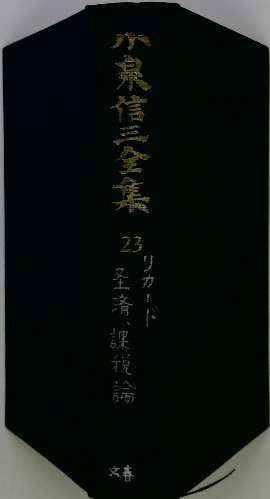 小泉信三全集
23
リカード
圣済、課税論
文春